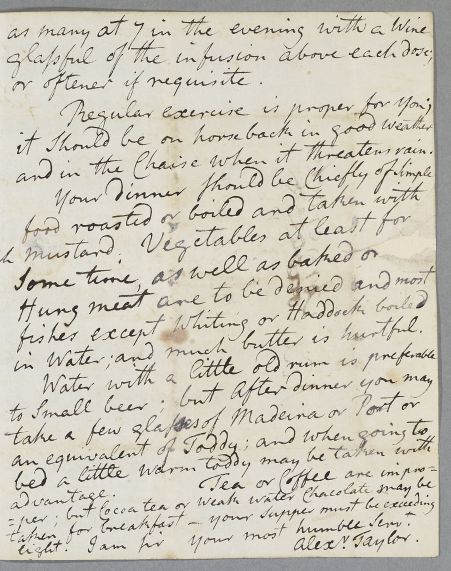 as many at 7 in the evening with a Wine
glassful of the infusion above each dose;
or oftener if requisite.
Regular exercise is proper for you;
it should be on horseback in good weather
and in the Chaise when it threatens rain.
Your Dinner should be Chiefly of simple
food roasted or boiled and taken with
h mustard. Vegetables at least for
some time, as well as baked or
Hung meat are to be denied and most
fishes except Whiting or Haddock boiled
in Water; and much butter is hurtful.
Water with a little old rum is preferable
to Small beer; but After dinner you may
take a few glasses of Madeira or Port or
an equivalent of Toddy; and when going to
bed a little warm toddy may be taken with
advantage. Tea or Coffee are impro=
=per; but Cocoa tea or weak water Chocolate may be
taken for breakfast – your supper must be exceeding
light. I am sir your most humble Servt.
Alexr. Taylor.